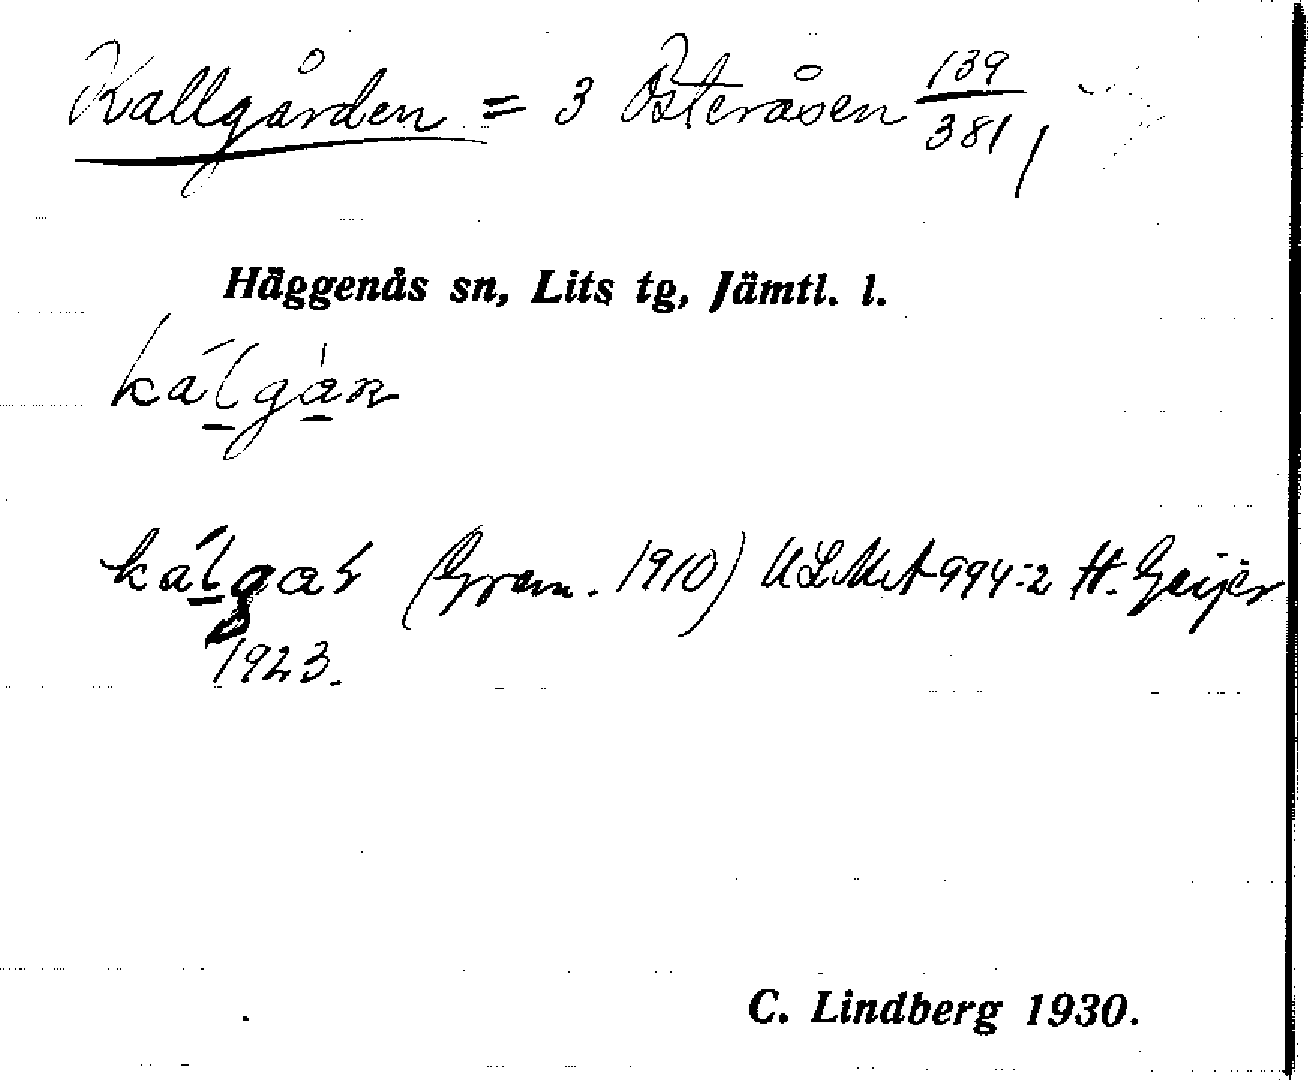 Kallgården = 3 Österåsen 139/381,
Häggenås sn, Lits tg, Jämtl. l.
ká̱lgàn
ká̱lgaṡ (Gram. 1910) ULMA 994:2 H. Geijer
1923.
C. Lindberg 1930.